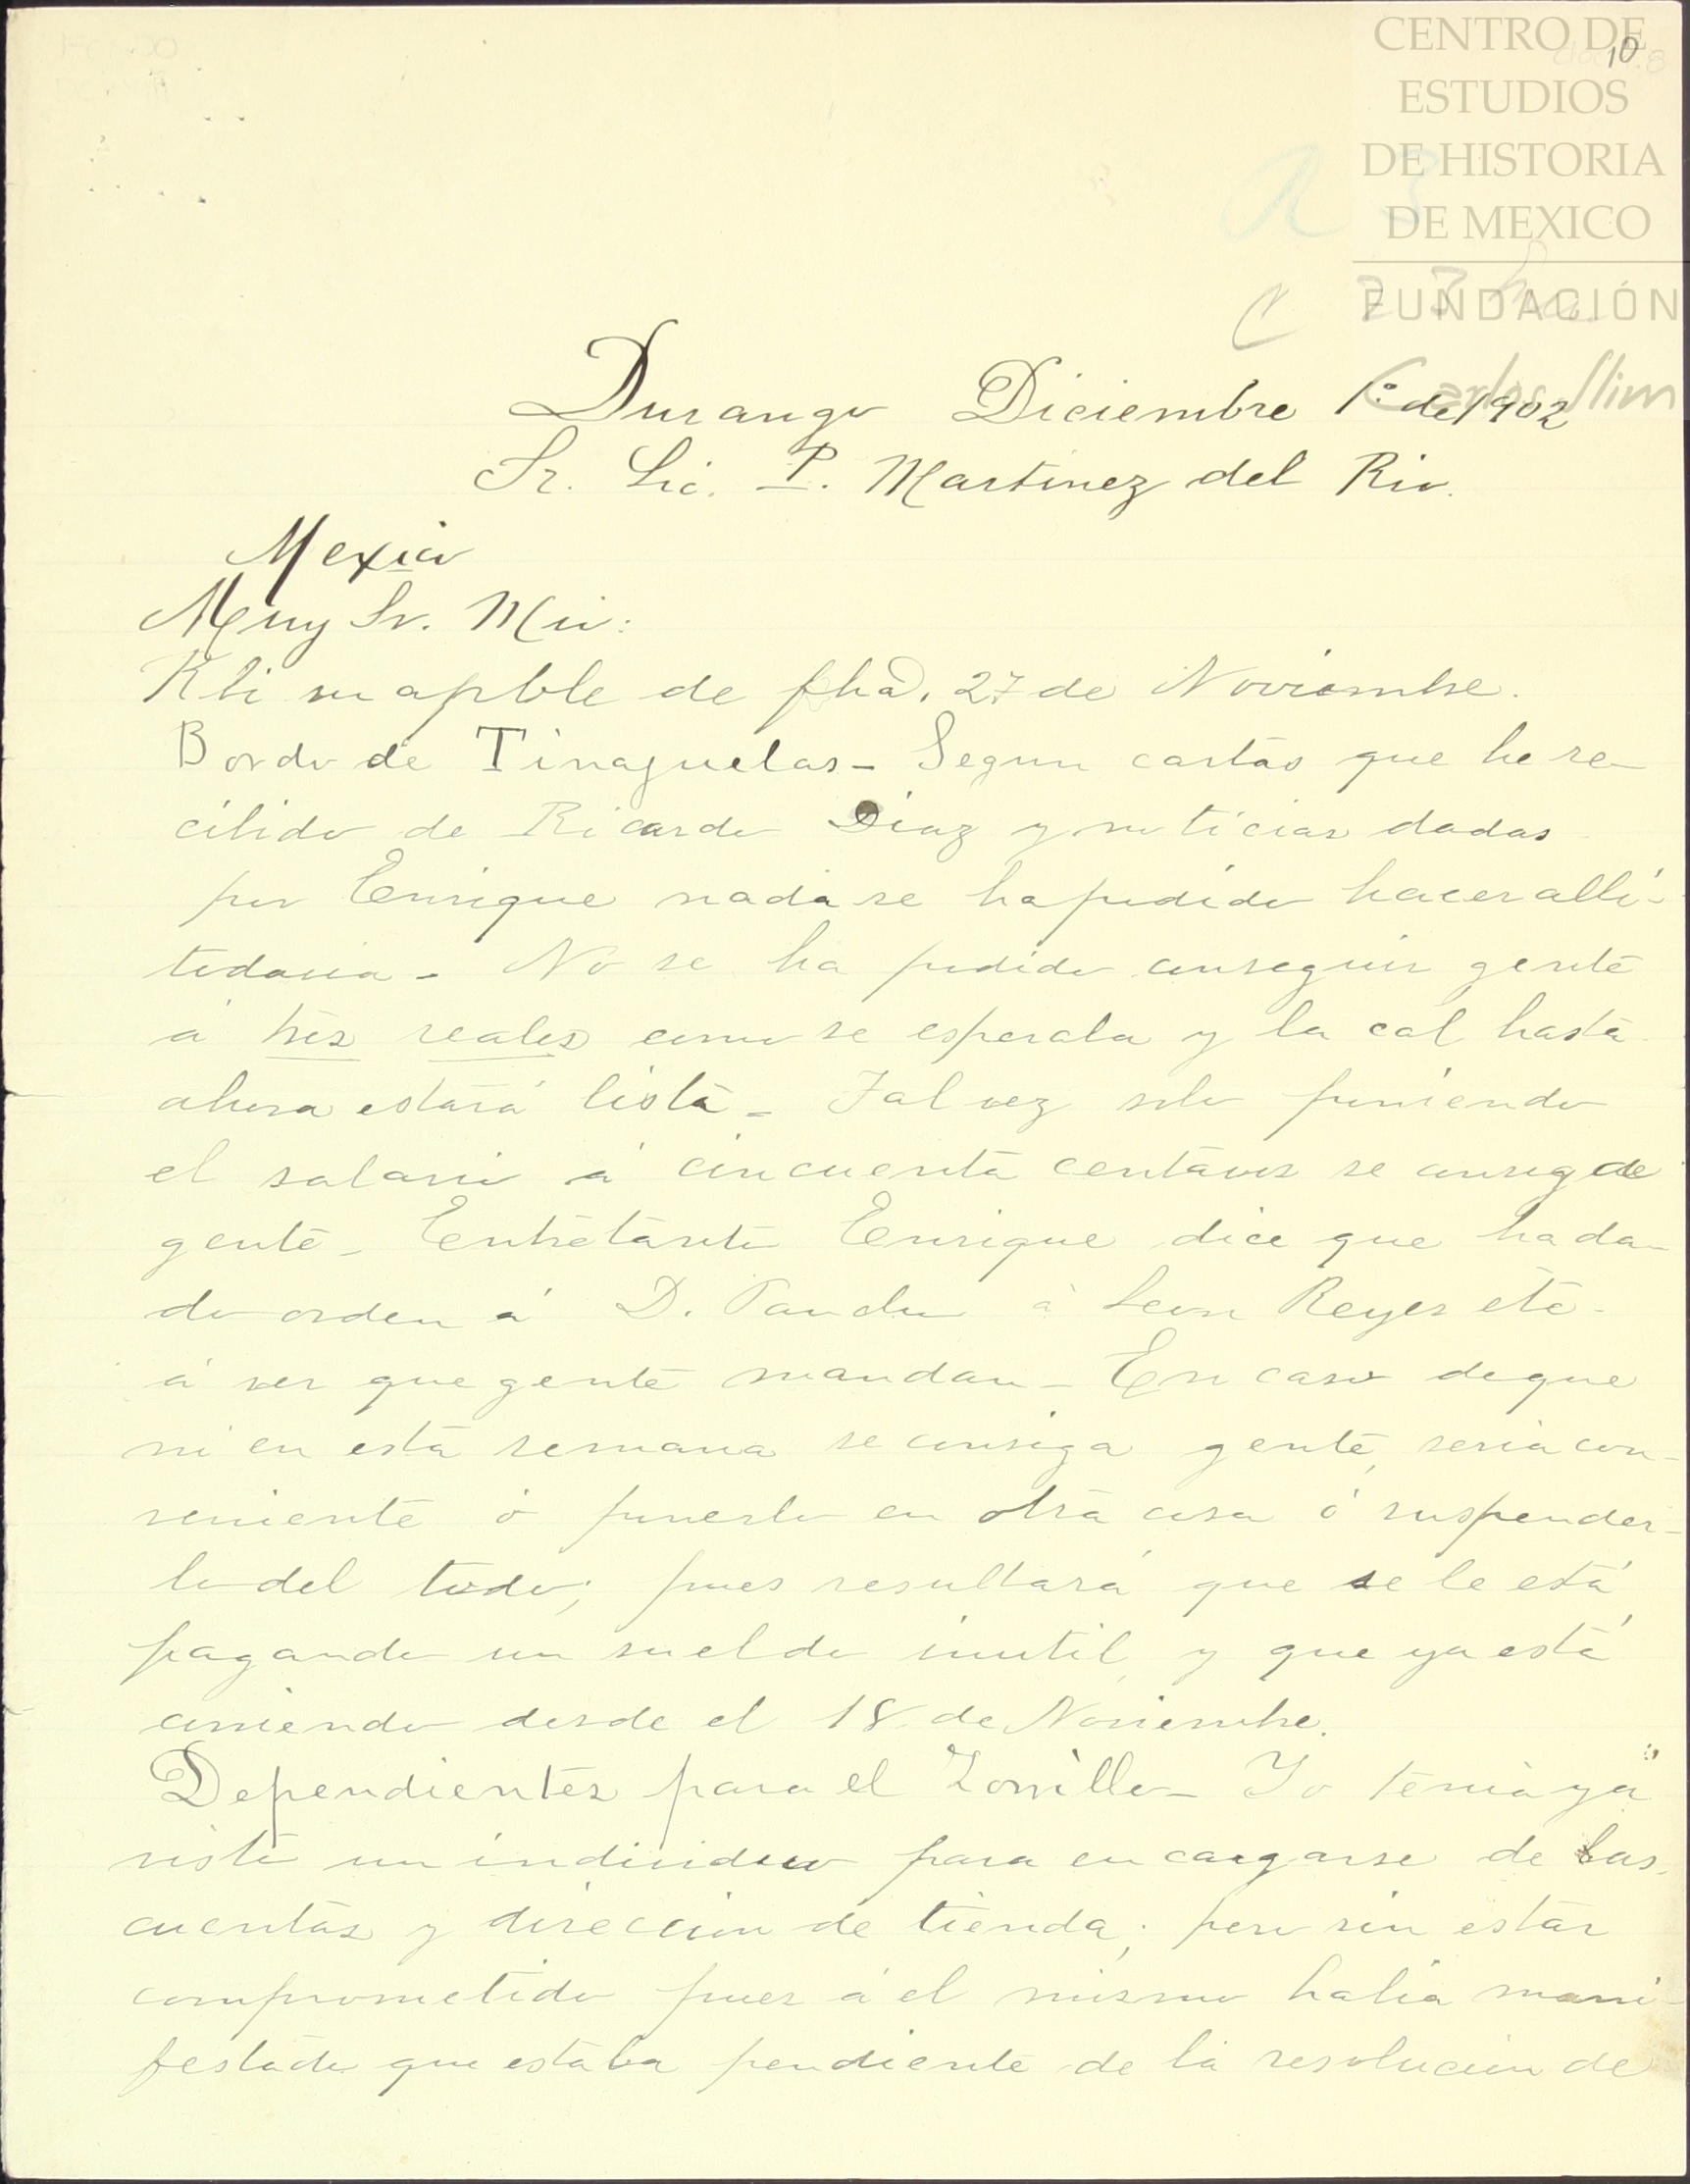 CENTRO DE
ESTUDIOS
DE HISTORIA
DE MEXICO
FUNDACIÓN
Carlos Slim
10
Durango Diciembre 1º de 1902
Sr. Lic. P. Martinez del Rio.
Mexico
Muy Sr. Mio:
Rbi su apble de fha. 27 de Noviembre.
Bordo de Tinaguelas - Segun cartas que he re-
cibido de Ricardo Diaz y noticias dadas
por Enrique nada se ha podido hacer allí
todavia - No se ha podido conseguir gente
á tres reales como se esperaba y la cal hasta
ahora estará lista - Tal vez solo poniendo
el salario á cincuenta centavos se consigue
gente - Entretanto Enrique dice que ha da-
do orden á D. Pancho á Leon Reyes etc -
á ver que gente mandan - En caso de que
ni en esta semana se consiga gente, seria con-
veniente ó ponerlo en otra cosa ó suspender-
lo del todo; pues resultará que se le está
pagando un sueldo inutil, y que ya está
corriendo desde el 18 de Noviembre.
Dependientes para el Zorrillo - Yo tenia ya
visto un individuo para encargarse de las
cuentas y direccion de tienda; pero sin estar
comprometido pues á el mismo habia mani-
festado que estaba pendiente de la resolucion de